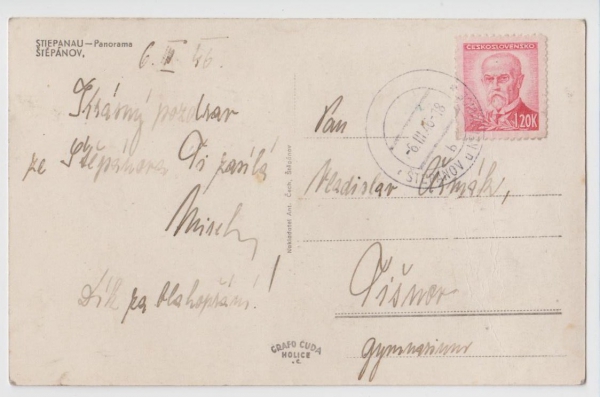 STIEPANAU — Panorama
ŠTĚPÁNOV,
6. III. 46.
Krásný pozdrav
ze Štěpánova Ti zasílá
Dík za blahopřání!
Nakladatel Ant. Čech,
GRAFO ČUDA
HOLICE
ČESKOSLOVENSKO
1.20K
-6.III.46-18
Pan
Vladislav
Tišnov
gymnasium